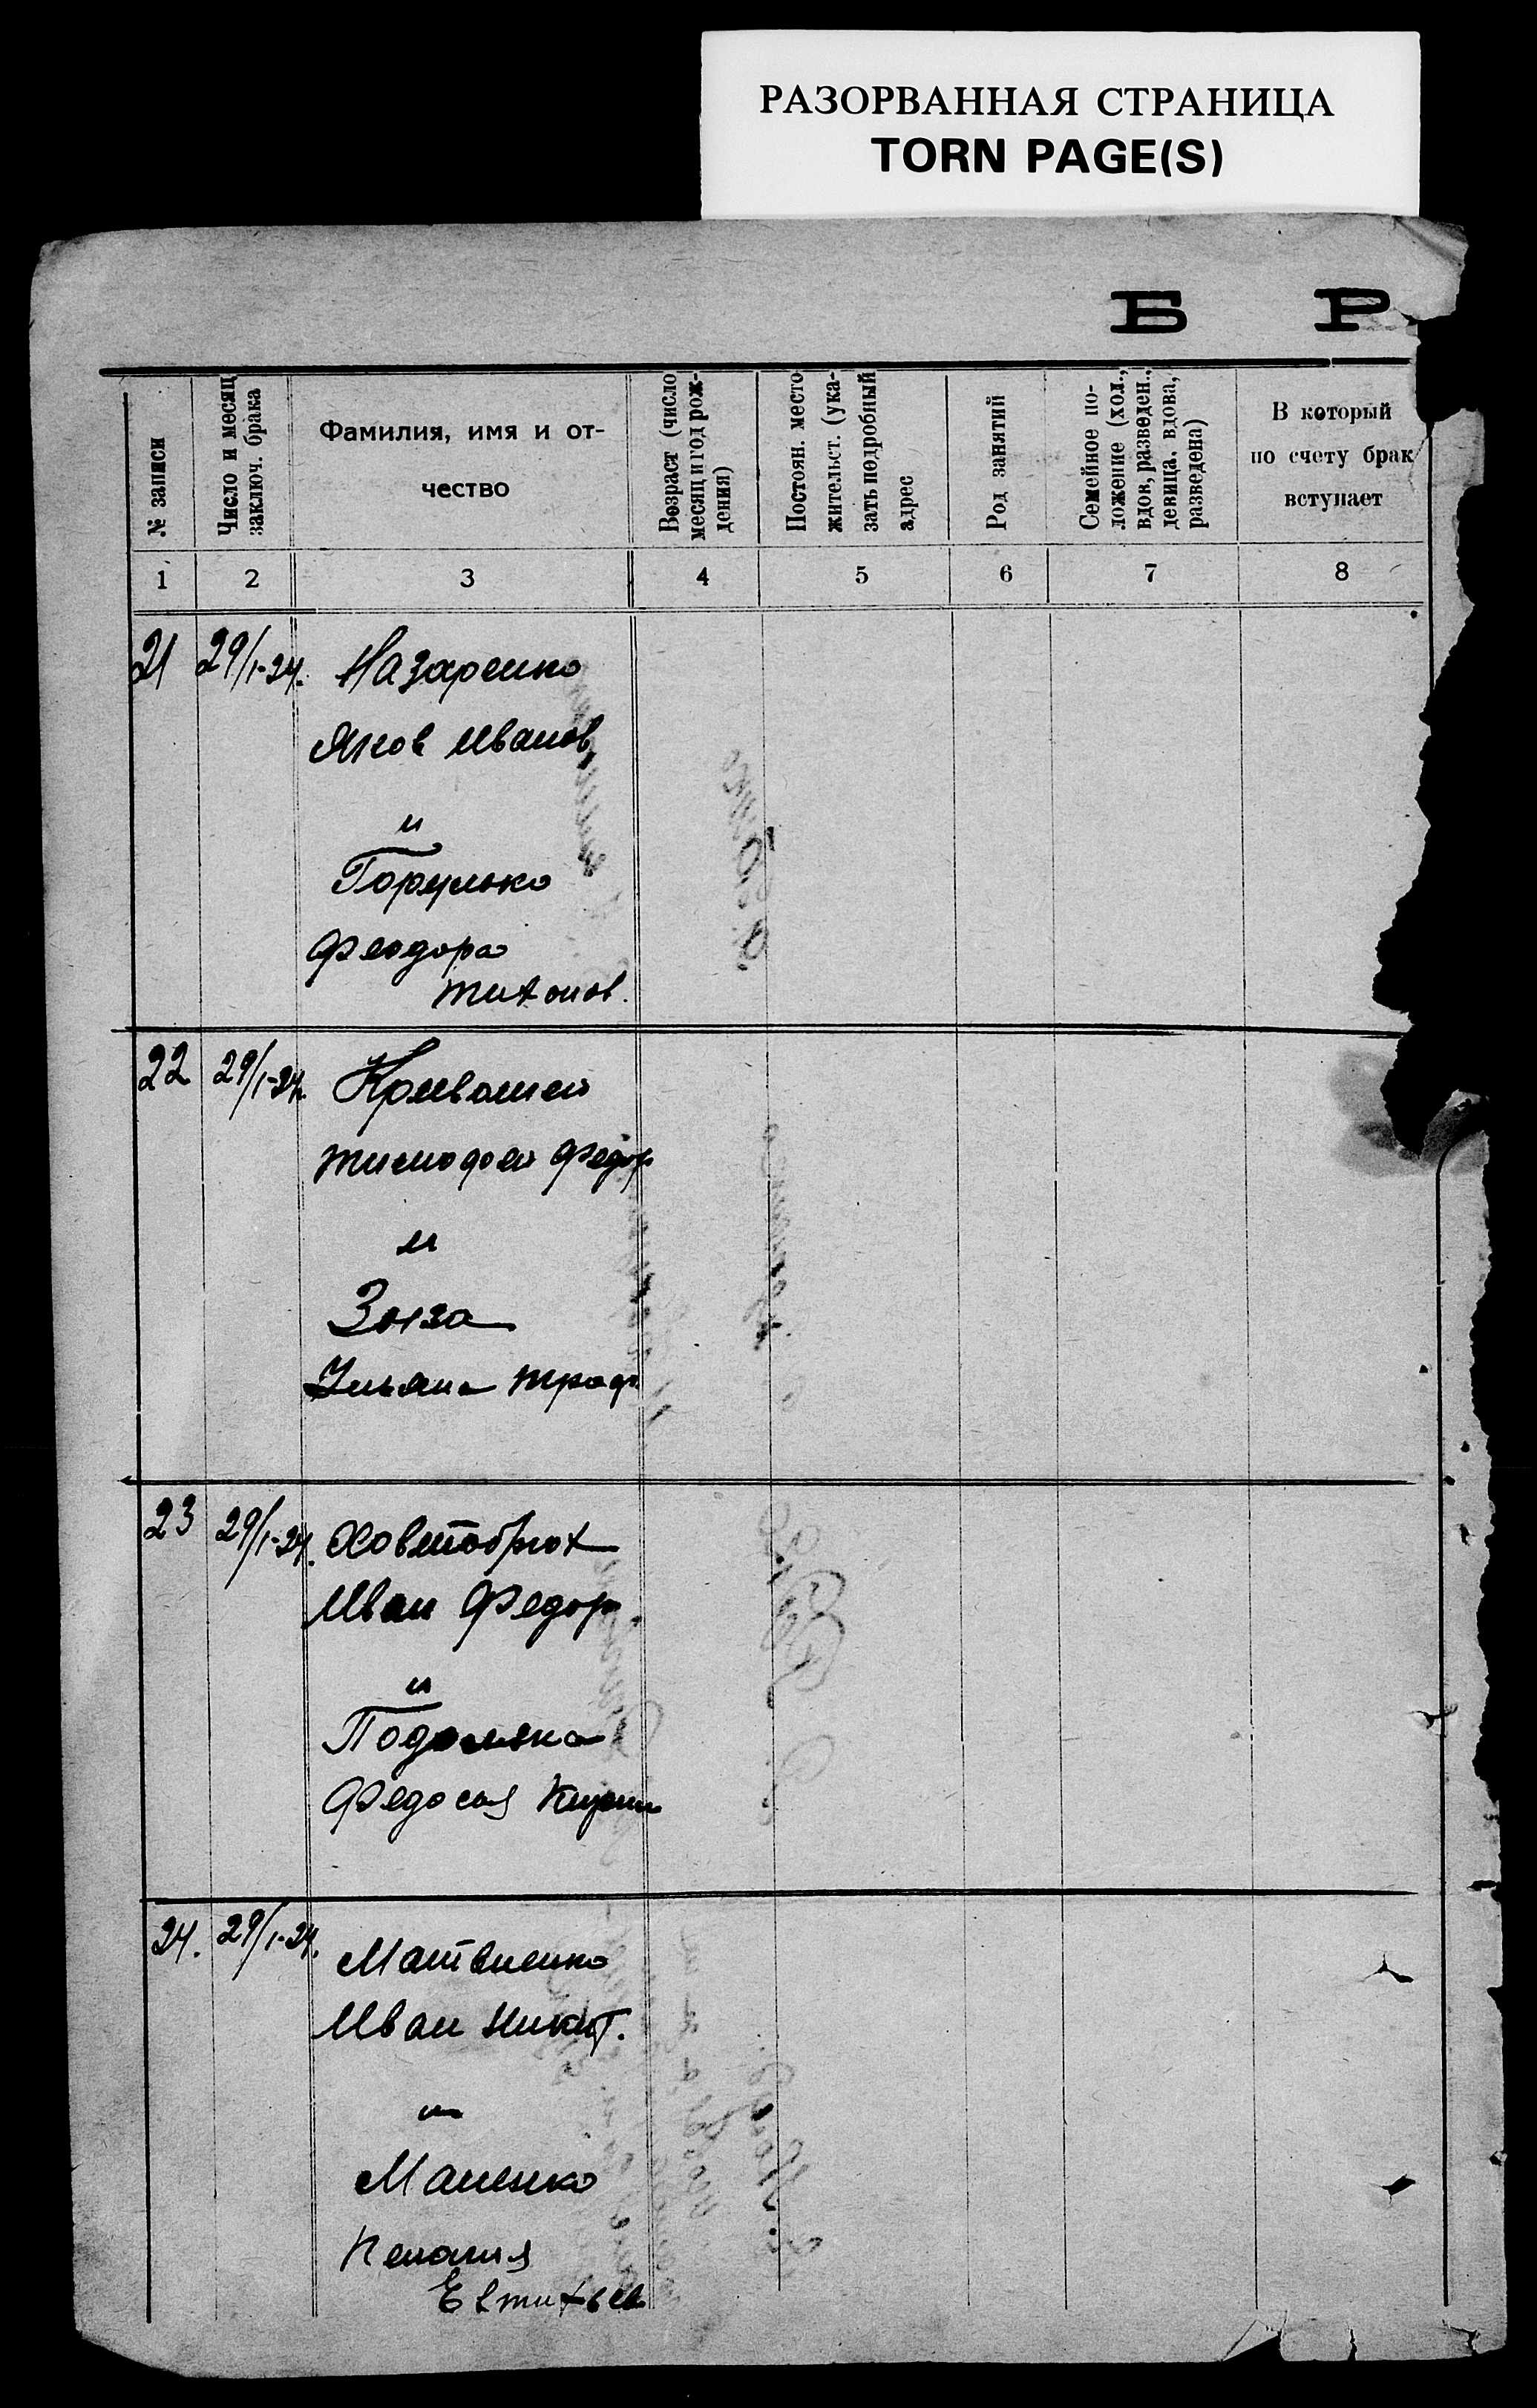 РАЗОРВАННАЯ СТРАНИЦА
TORN PAGE(S)
Б Р
№ записи
Число и месяц
заключ. брака
Фамилия, имя и от-
чество
Возраст (число
месяц и год рож-
дения)
Постоян. место
жительст. (ука-
зать подробный
адрес
Род занятий
Семейное по-
ложение (хол.,
вдов, разведен.,
девица, вдова,
разведена)
В который
по счету брак
вступает
1 2 3 4 5 6 7 8
21 29/1-24. Назаренко
Яков Иванов,
и
Горулько
Феодора
Тихонов.
22 29/1-24. Кривошей
Тимофей Федор
и
Зюза
Ульяна Троф
23 29/1-24. Ховтобрюх
Иван Федор.
и
Подоляка
Федосия Кирил
24. 29/1-24. Матвиенко
Иван Никит.
и
Маленко
Евтихьев